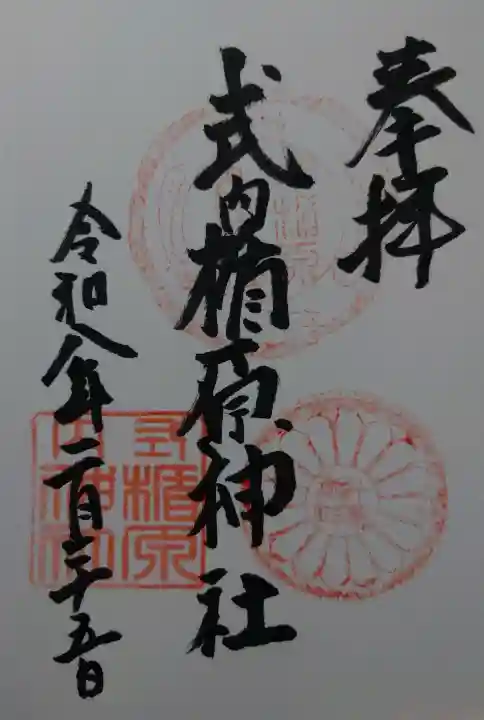 奉拝
式内楯原神社
令和八年二月二十五日
式楯原
内神社